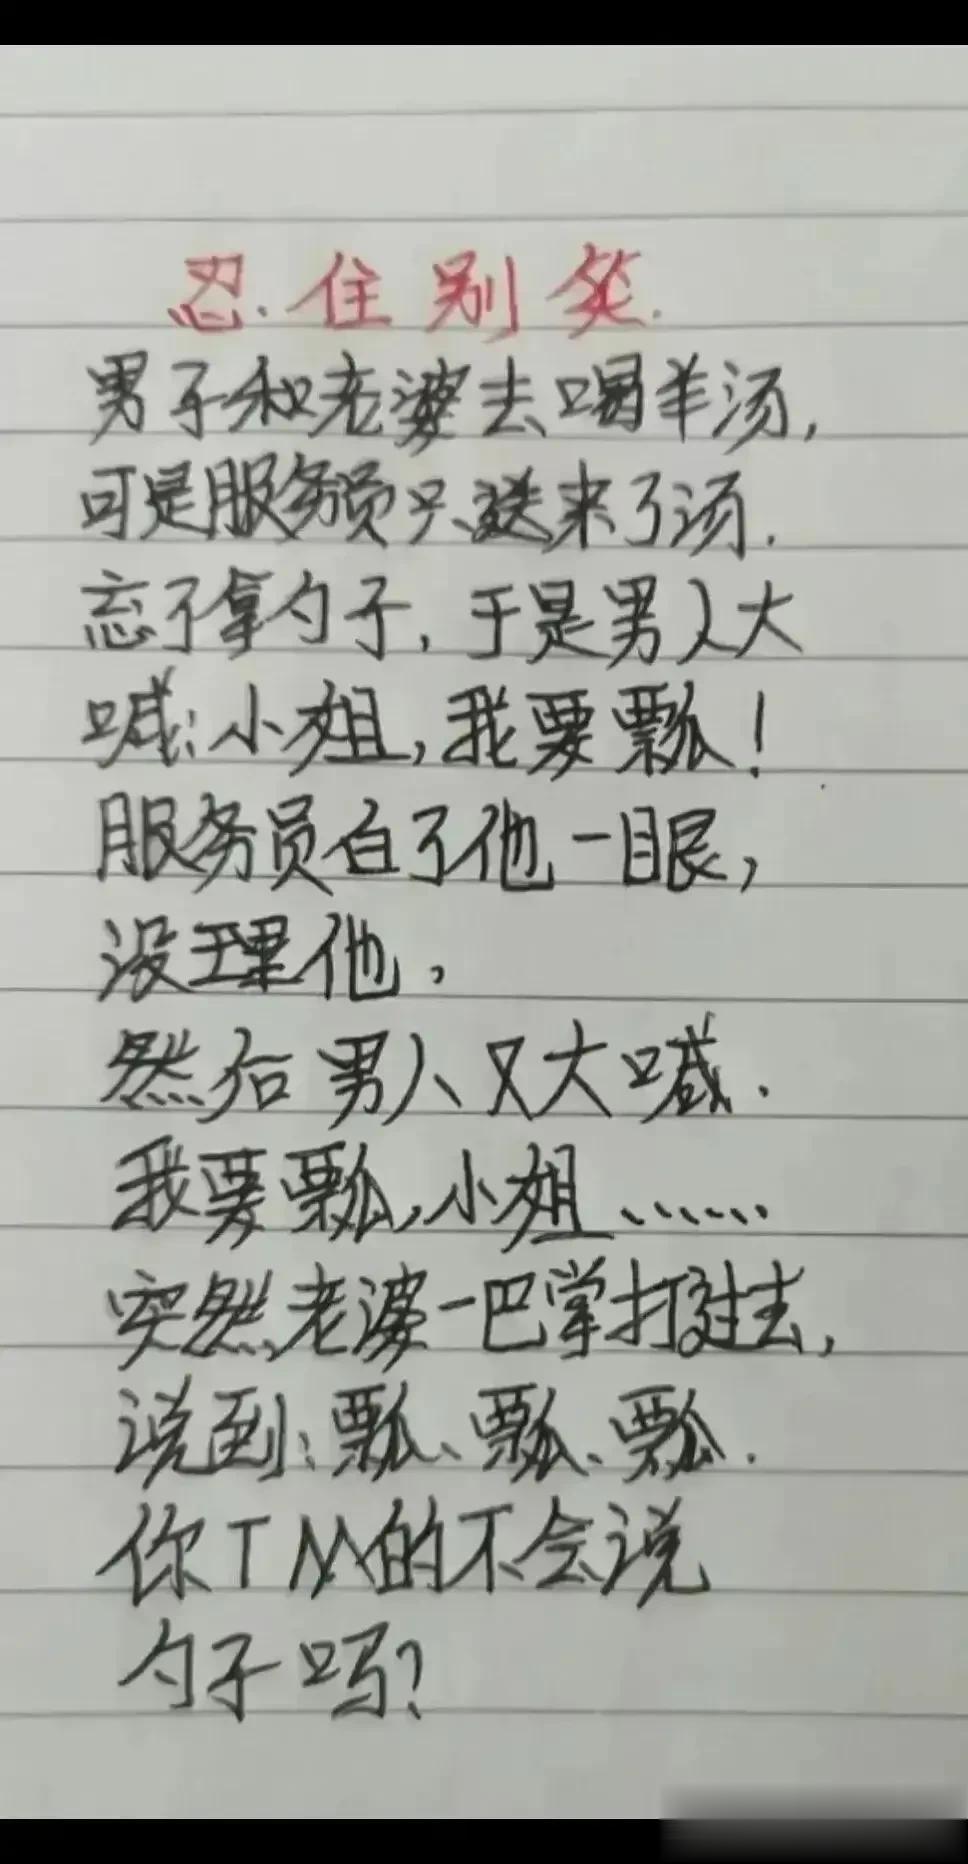 忍住别笑.
男子和老婆去喝羊汤,
可是服务员只送来了汤.
忘了拿勺子,于是男人大
喊:小姐,我要瓢!
服务员白了他一眼,
没理他,
然后男人又大喊.
我要瓢,小姐......
突然老婆一巴掌打过去,
说到:瓢、瓢、瓢.
你TM的不会说
勺子吗?